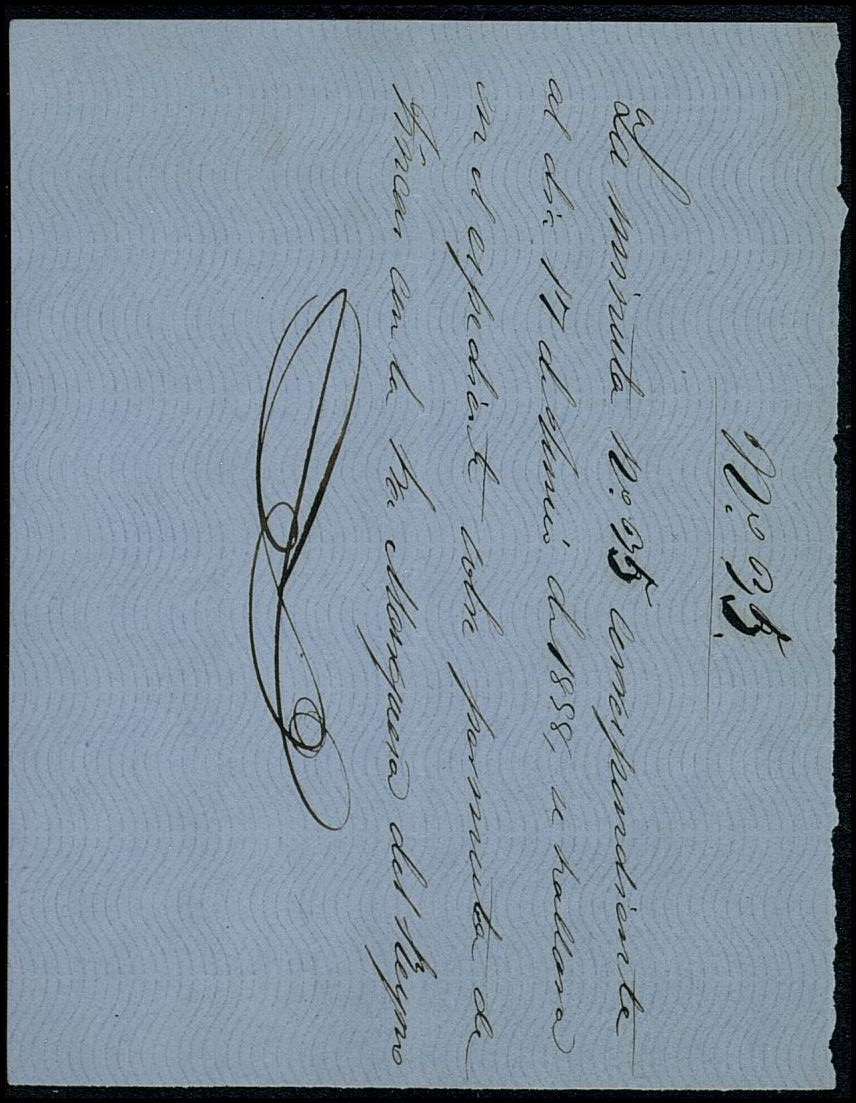 N.º 35.
La minuta N.º 35 correspondiente
al dia 17 de Junio de 1858, se hallara
en el expediente sobre permuta de
fincas con la Sra Mosquera del Reyno